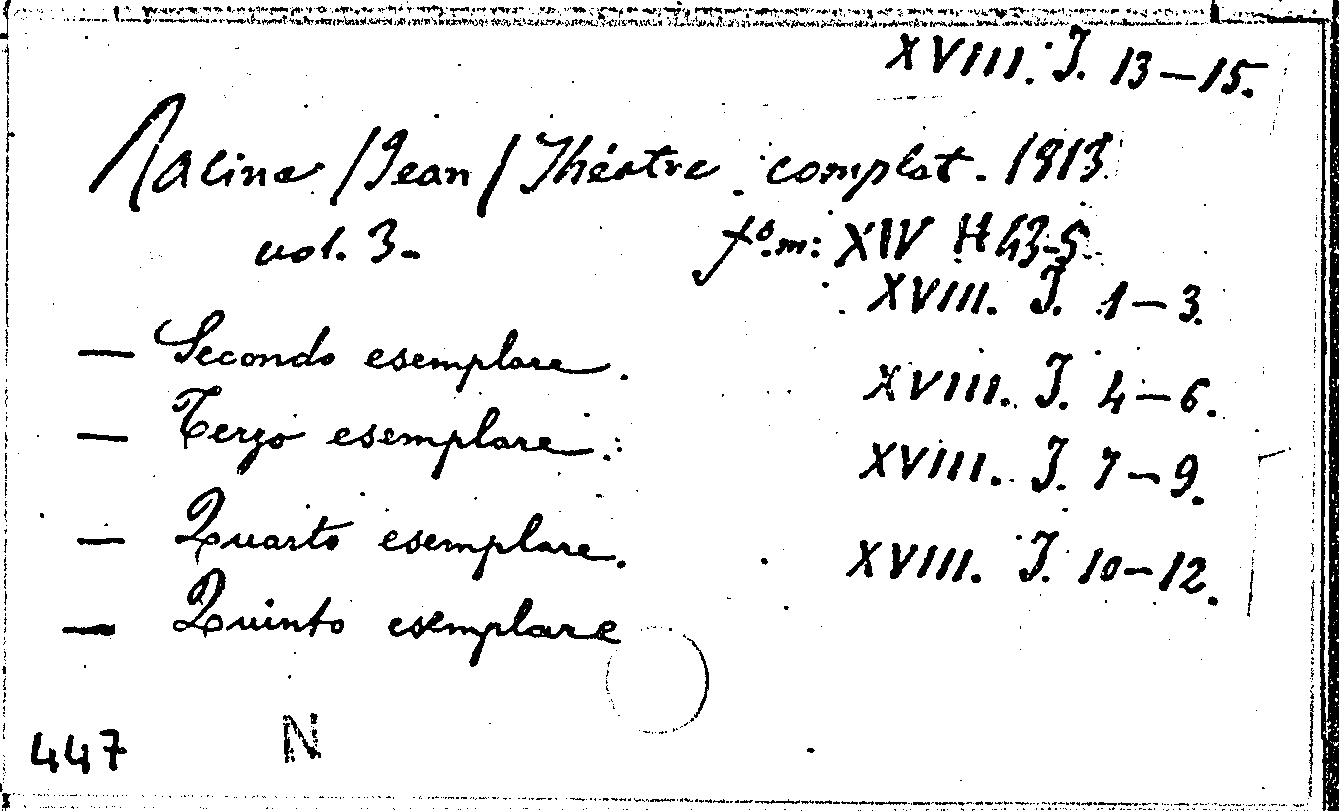 XVIII. J. 13-15.
Racine /Jean/ Théatre complet. 1913
vol. 3. f.º m: XIV H 43-5
XVIII. J. 1-3.
— Secondo esemplare.
XVIII. J. 4-6.
— Terzo esemplare.
XVIII. J. 7-9.
— Quarto esemplare.
XVIII. J. 10-12.
— Quinto esemplare
447 N